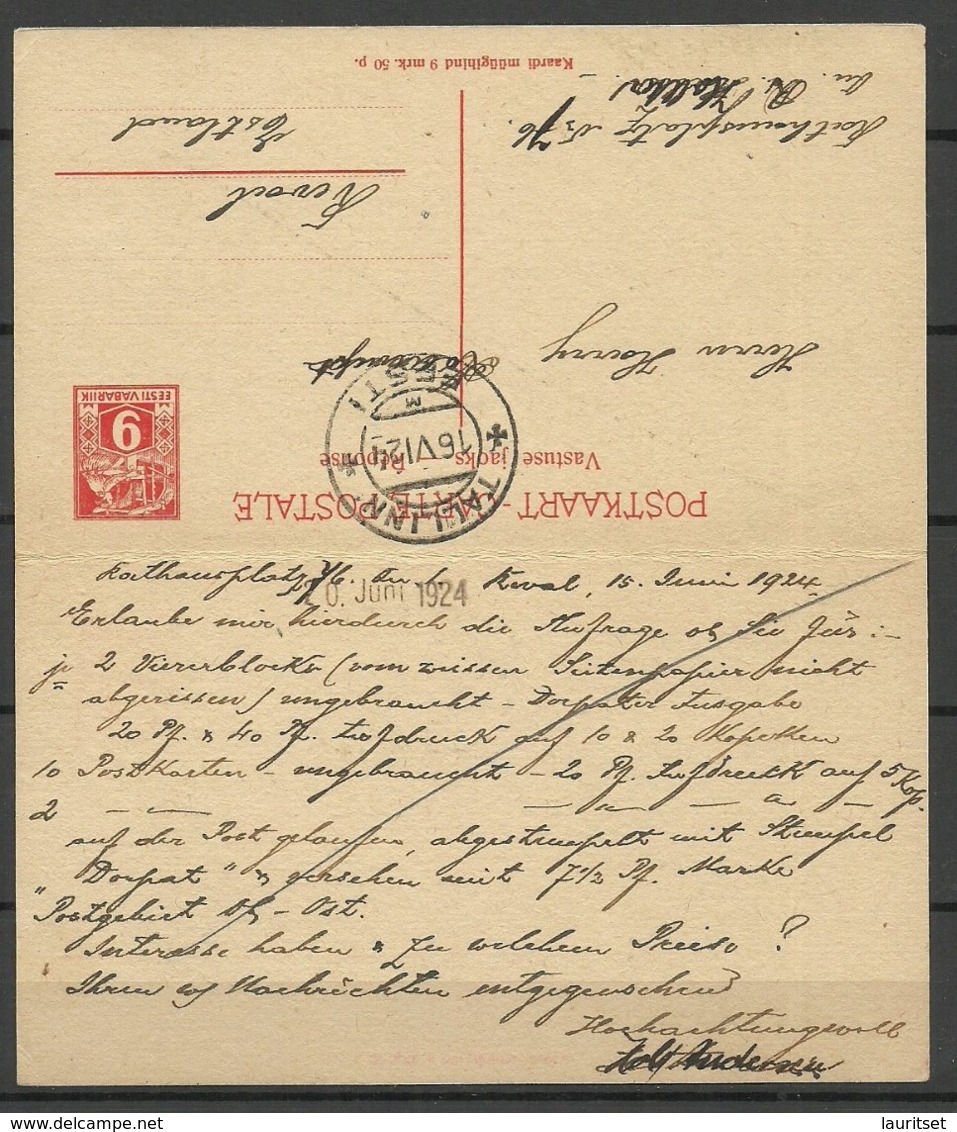 Kaardi müügihind 9 mrk. 50 p.
Rathausplatz
Estland
Reval
Herrn Harry
EESTI VABARIIK
9
EESTI
M
16 VI 24
TALLINN
Vastuse jaoks - Réponse
POSTKAART - CARTE POSTALE
Rathausplatz 7/6. Reval, 15. Juni 1924.
20. Juni 1924
Erlaube mir hierdurch die Anfrage ob Sie für:-
je 2 Viererblocks (vom weissen Seitenpapier nicht
abgerissen) ungebraucht - Dorpater Ausgabe
20 Pf. & 40 Pf. Aufdruck auf 10 & 20 Kopeken
10 Postkarten - ungebraucht - 20 Pf. Aufdruck auf 5 Kop.
2 — — — " — " —
auf der Post gelaufen, abgestempelt mit Stempel
"Dorpat" & versehen mit 7 1/2 Pf. Marke
"Postgebiet Ob. - Ost.
Interesse haben & zu welchem Preise?
Ihren Nachrichten entgegensehend
Hochachtungsvoll
lauritset